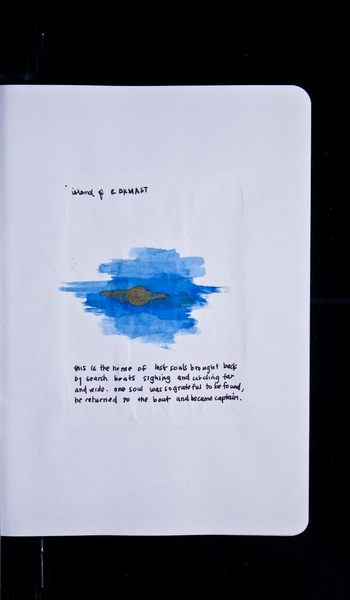 island of
this is the home of lost souls brought back
by search boats sighing and circling far
and wide. one soul was so grateful to be found,
he returned to the boat and became captain.